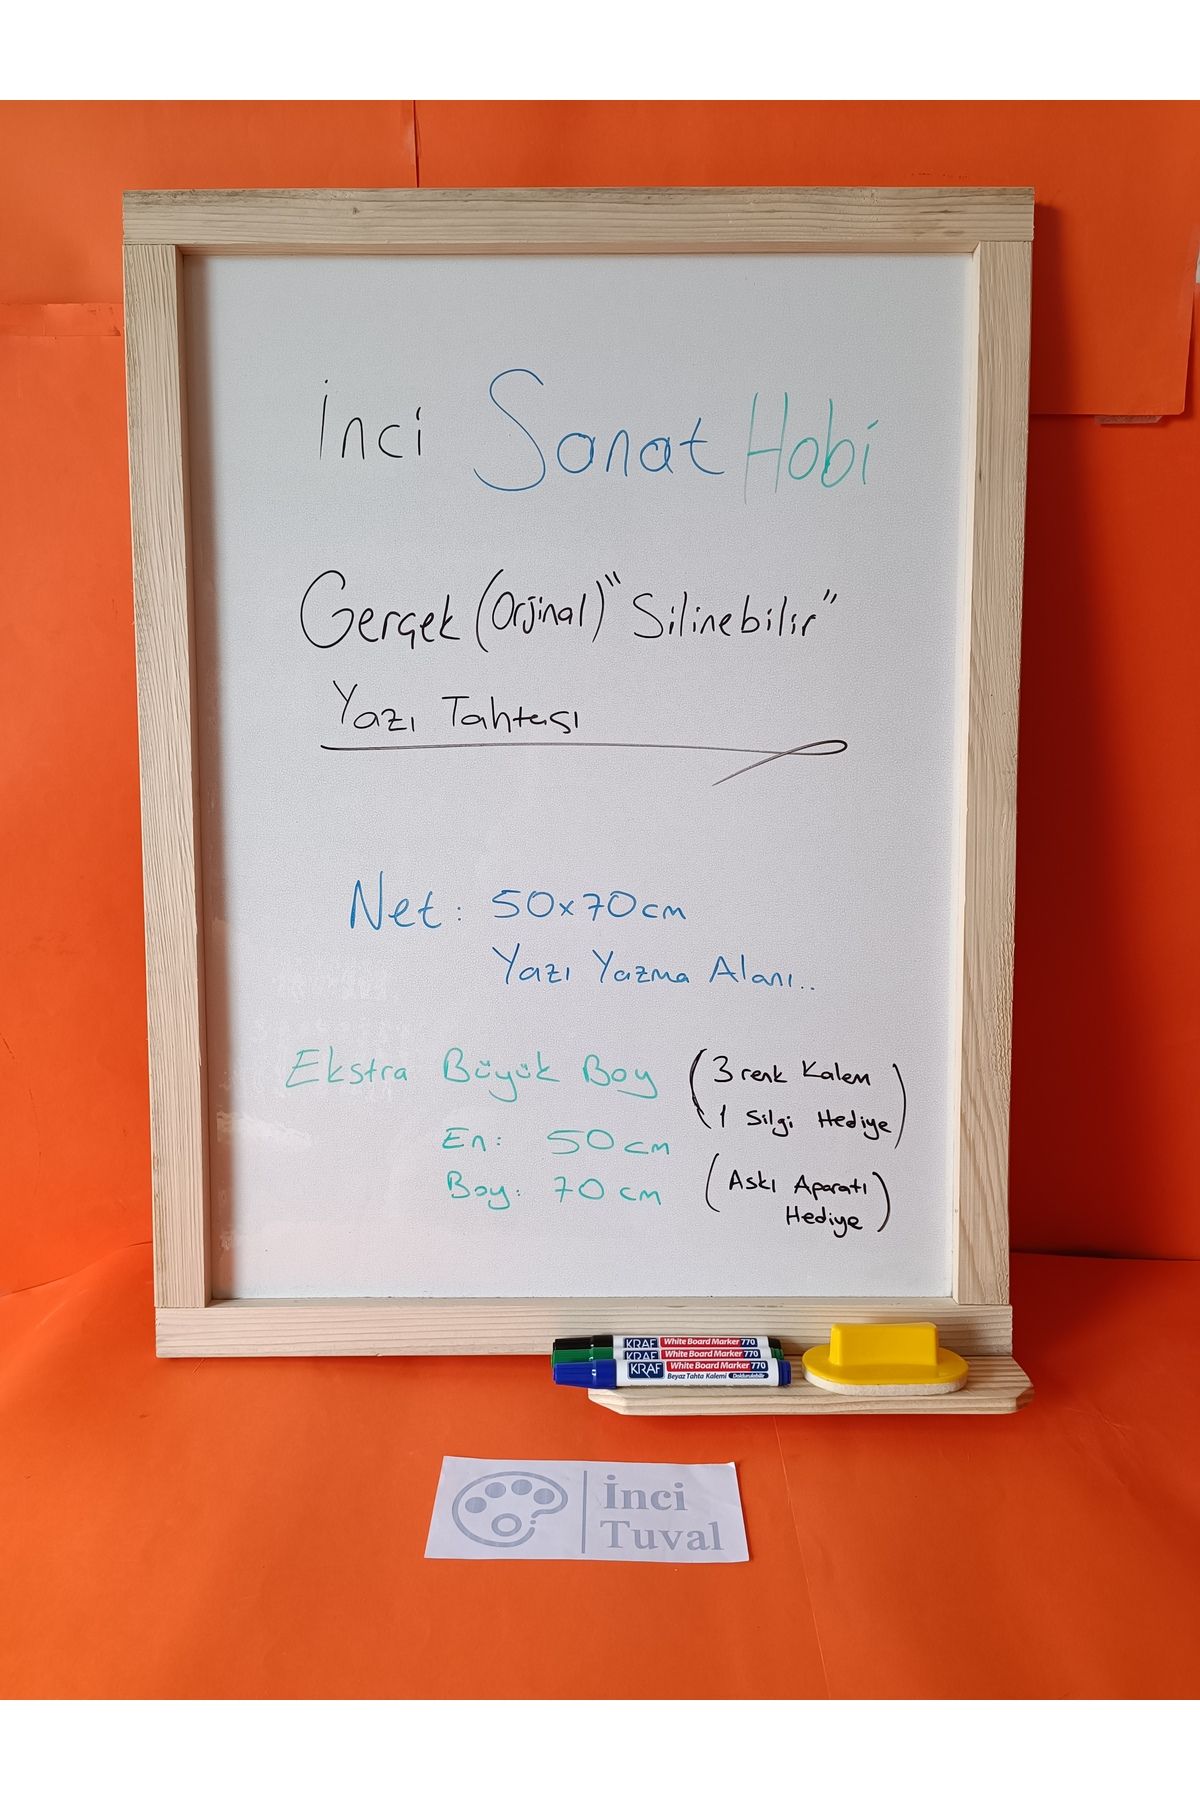 İnci Sanat Hobi
Gerçek (Orjinal) "Silinebilir"
Yazı Tahtası
Net: 50x70cm
Yazı Yazma Alanı..
Ekstra Büyük Boy
En: 50cm
Boy: 70cm
(3 renk Kalem
1 Silgi Hediye)
(Askı Aparatı
Hediye)
KRAF White Board Marker 770
KRAF White Board Marker 770
KRAF White Board Marker 770
Beyaz Tahta Kalemi Doldurulabilir
İnci
Tuval